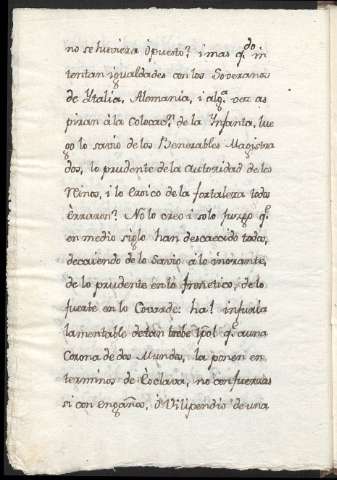 no se huviera opuesto? i mas q.do in
tentan igualdades con los Soveranos
de Ytalia, Alemania, i alg.a vez as
piran à la colocac.n de la Ynfanta, lue
go lo savio de los Benerables Magistra
dos, lo prudente de la autoridad de los
Reinos, i lo eroico de la fortaleza todos
erraron? No lo creo i solo juzgo q.e
en medio siglo han descaecido todos,
decaiendo de lo savio à lo inorante,
de lo prudente en lo frenetico, de lo
fuerte en lo Covarde: ha!
lamentable de tan q.e a una
Corona de dos Mundos, la ponen en
terminos de Esclava, no con fuerzas
si con engaños, ò Vilipendio de una